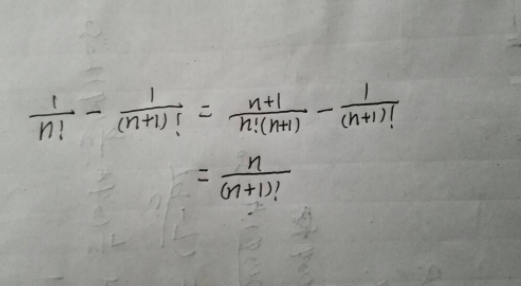 1/n! - 1/(n+1)! = n+1/n!(n+1) - 1/(n+1)!
= n/(n+1)!